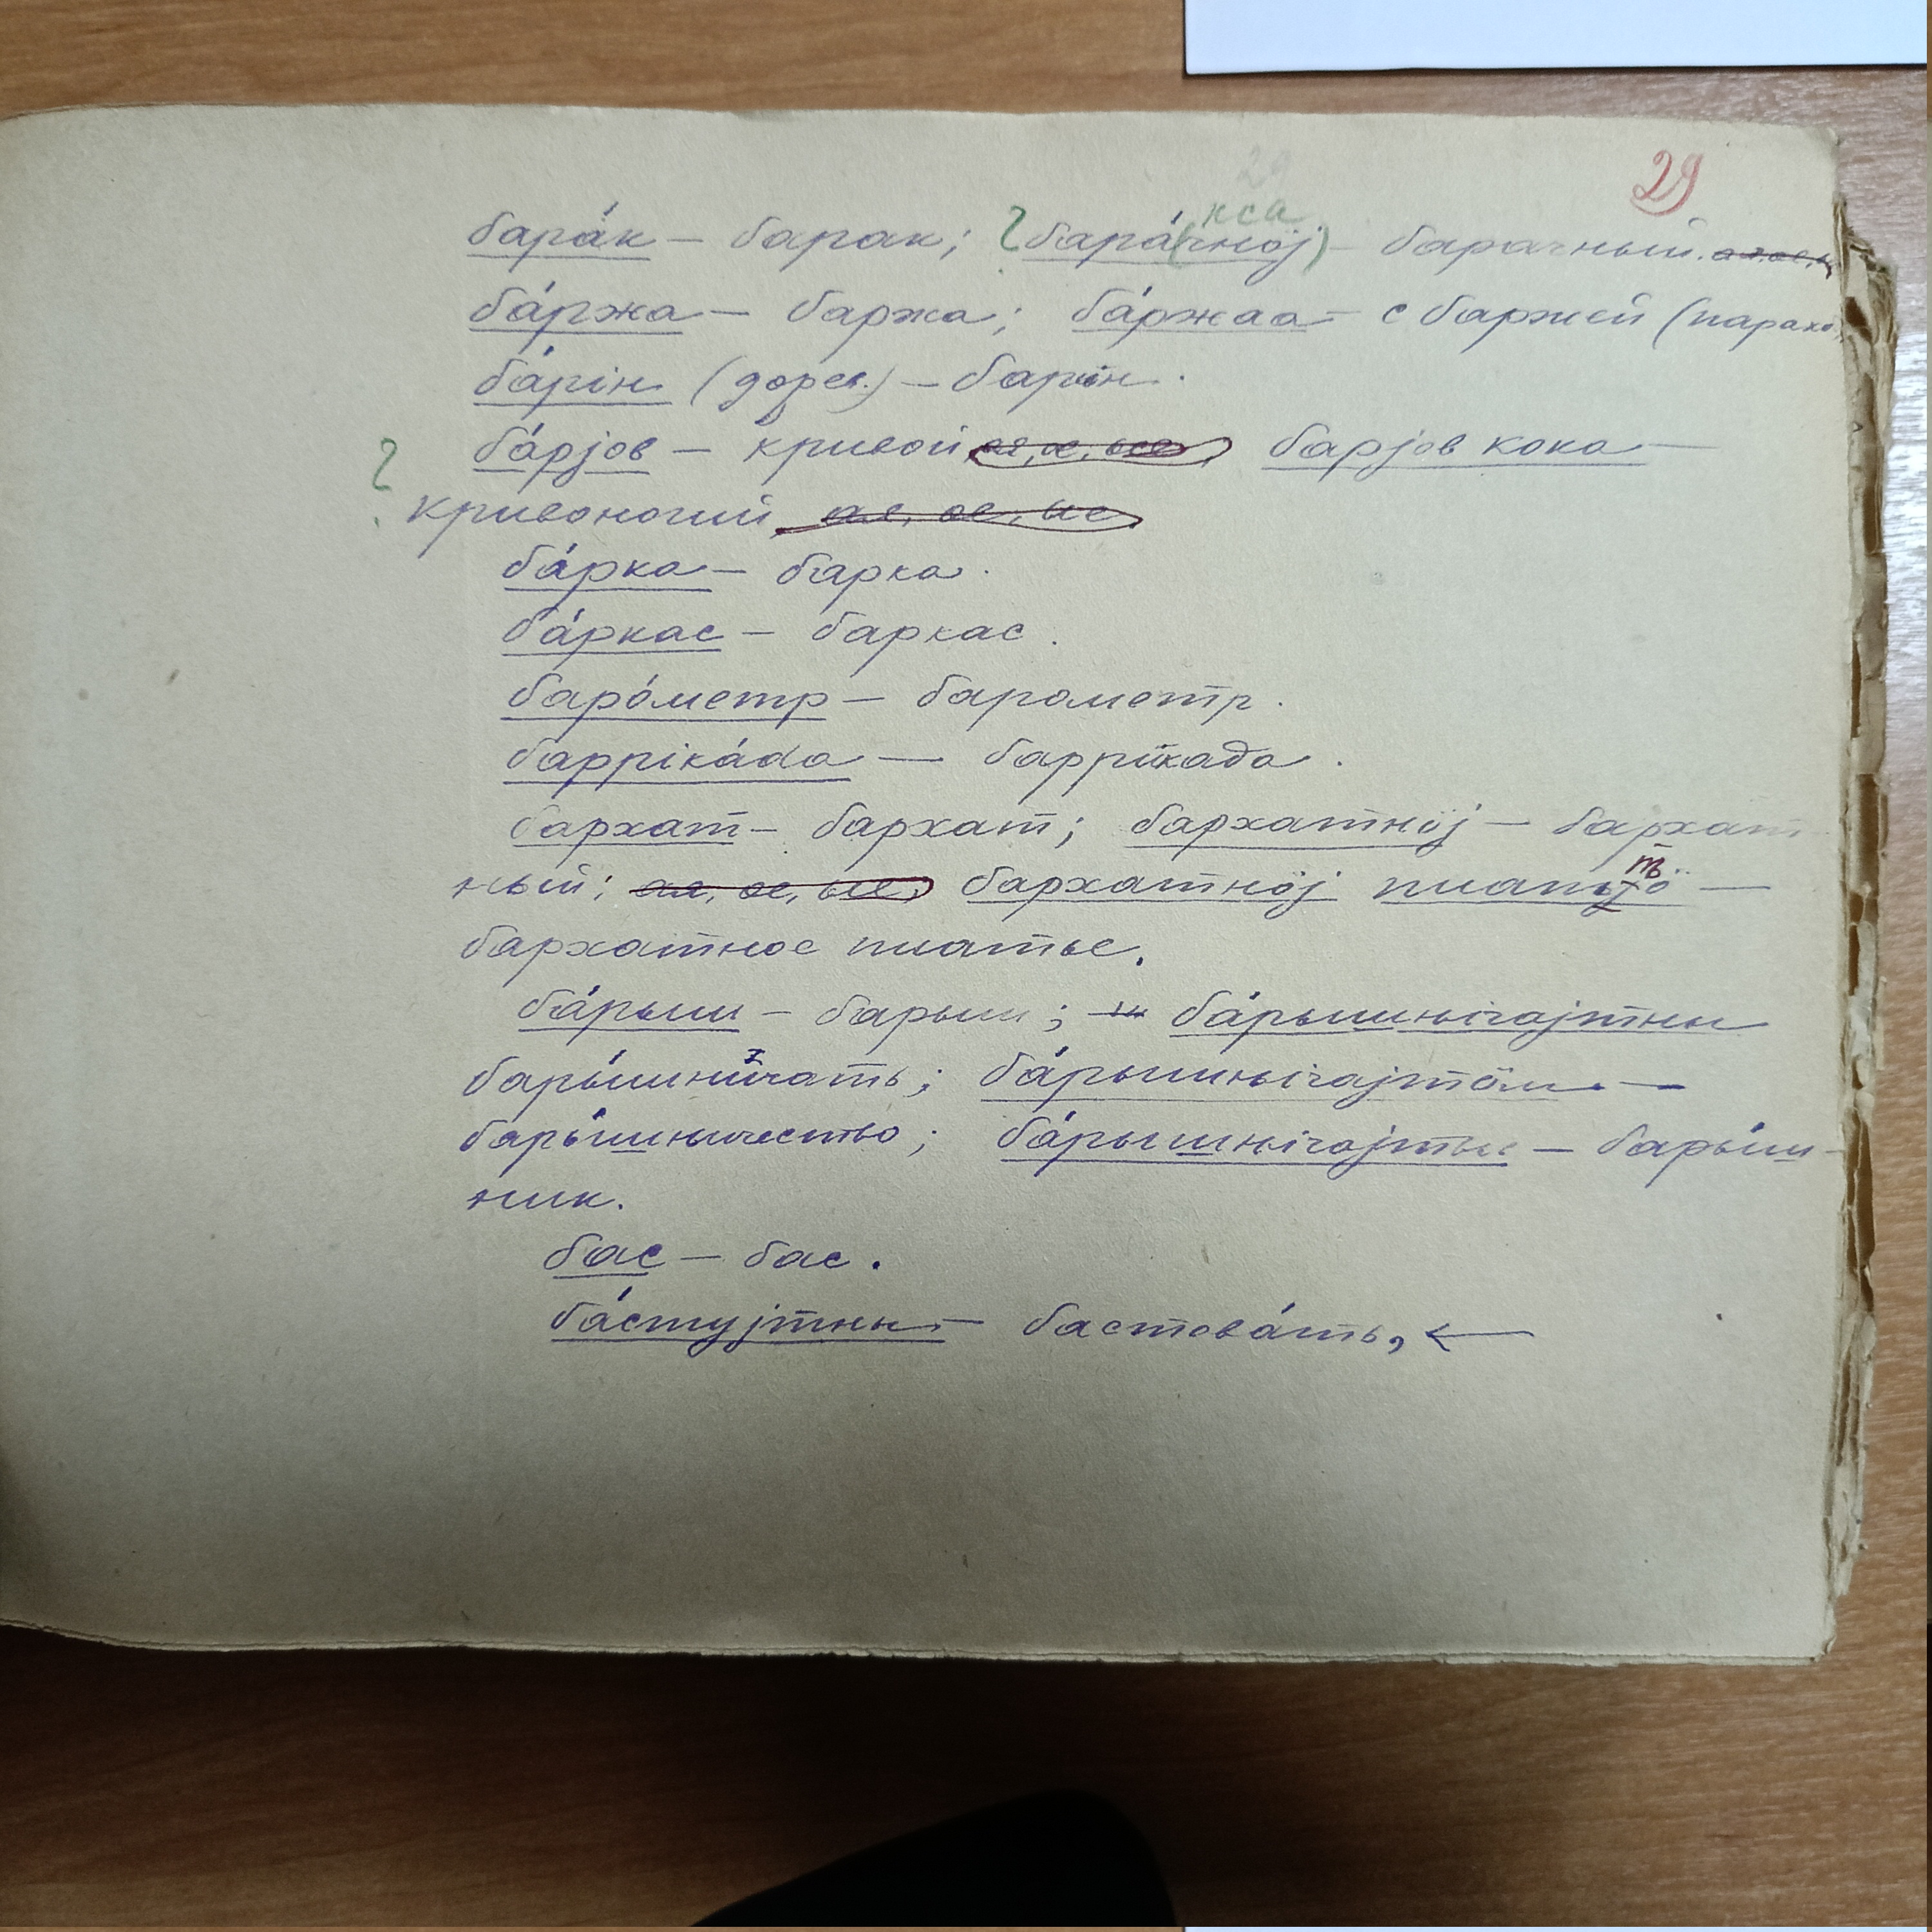 29
29
кса
бара́к – барак; ? бара́(чнöj) – барачный. ая, ое, ы
ба́ржа – баржа; ба́ржаа – с баржей (парахо
ба́рін (дорев.) – барин.
? ба́рjов – кривой, ая, ое, ые, барjов кока –
кривоногий, ая, ое, ие
ба́рка – барка.
ба́ркас – баркас.
баро́метр – барометр.
барріка́da – баррикада.
бархат – бархат; бархатнöj – бархат-
ть
ный; ая, ое, ые, бархатнöj платjö –
бархатное платье.
ба́рыш – барыш; ба́рышнічајтны
бары́шничать; ба́рышнічајтöм –
бары́шничество; ба́рышнічајтыс – бары́ш-
ник.
бас – бас.
ба́стујтны – бастова́ть, ←